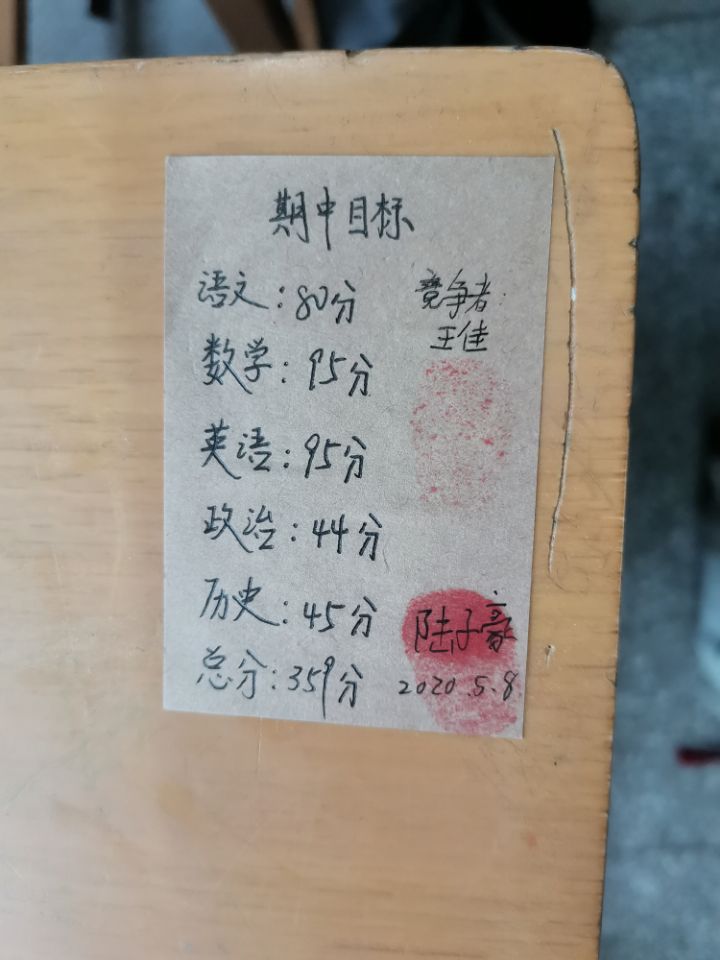 期中目标
语文：80分
竞争者：
王佳
数学：95分
英语：95分
政治：44分
历史：45分
陆子豪
总分：359分
2020.5.8